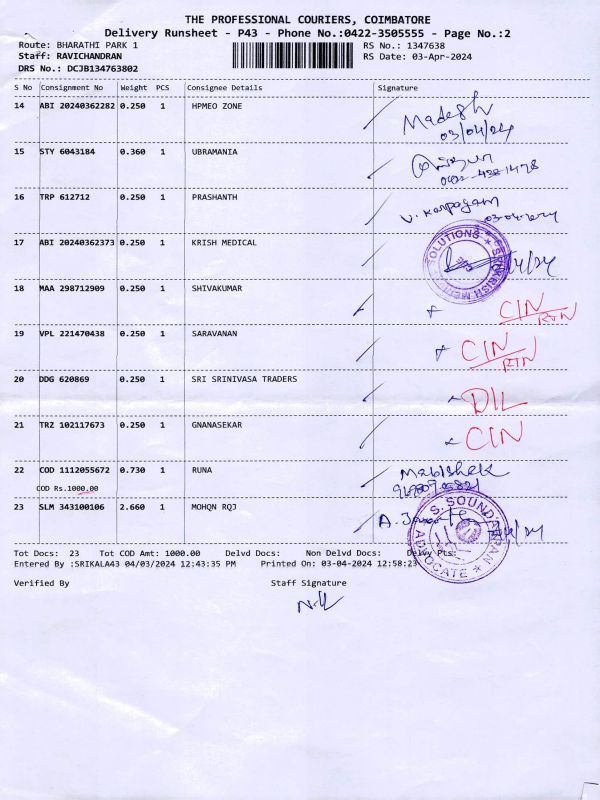 THE PROFESSIONAL COURIERS, COIMBATORE
Delivery Runsheet - P43 - Phone No.:0422-3505555 - Page No.:2
Route: BHARATHI PARK 1
RS No.: 1347638
Staff: RAVICHANDRAN
RS Date: 03-Apr-2024
DRS No.: DCJB134763802
S No Consignment No Weight PCS Consignee Details Signature
14 ABI 20240362282 0.250 1 HPMEO ZONE Madesh
03/04/24
15 STY 6043184 0.360 1 UBRAMANIA
16 TRP 612712 0.250 1 PRASHANTH V. Karpagam
17 ABI 20240362373 0.250 1 KRISH MEDICAL
18 MAA 298712909 0.250 1 SHIVAKUMAR CIN
19 VPL 221470438 0.250 1 SARAVANAN CIN
RTN
20 DDG 620869 0.250 1 SRI SRINIVASA TRADERS DIL
21 TRZ 102117673 0.250 1 GNANASEKAR CIN
22 COD 1112055672 0.730 1 RUNA
COD Rs.1000.00
23 SLM 343100106 2.660 1 MOHQN RQJ
S. SOUNDARARAN
ADVOCATE
Tot Docs: 23 Tot COD Amt: 1000.00 Delvd Docs: Non Delvd Docs: Delvy Pts:
Entered By :SRIKALA43 04/03/2024 12:43:35 PM Printed On: 03-04-2024 12:58:23
Verified By Staff Signature